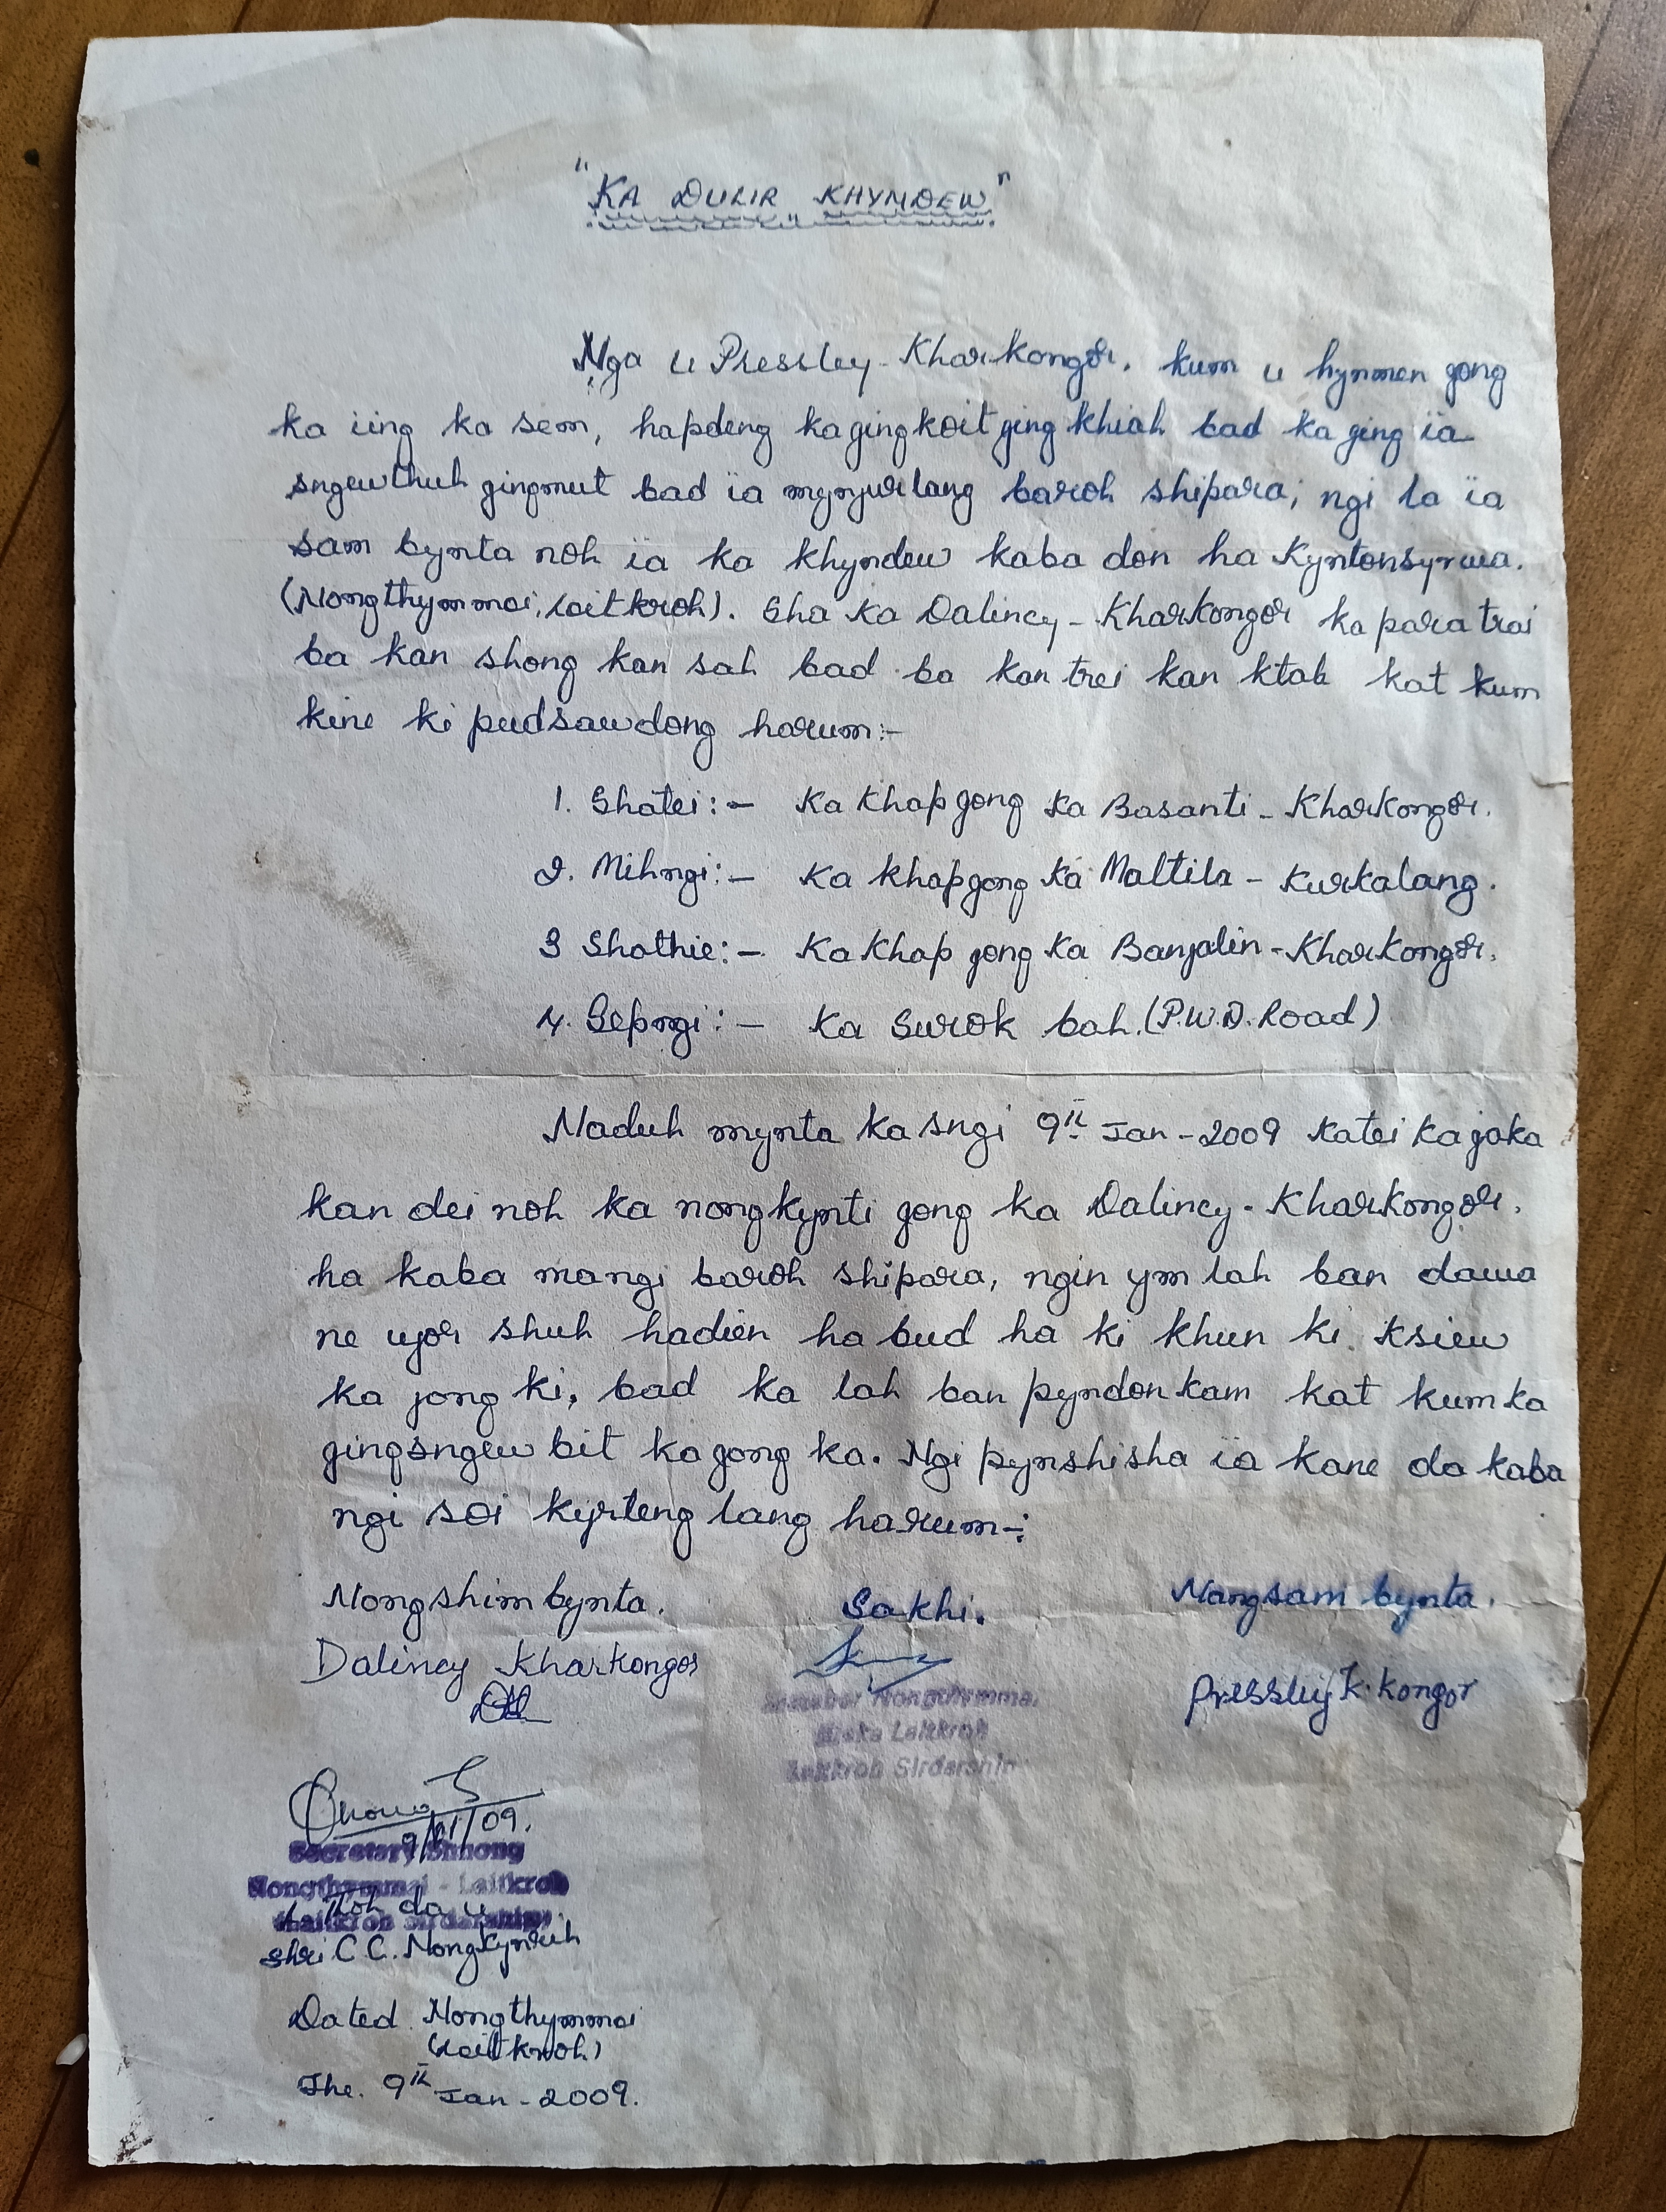 "KA DULIR KHYNDEW"
Nga u Pressley-Kharkongor. kum u hynmen jong
ka iing ka sem, hapdeng ka jing koit jing khiah bad ka jing ïa
sngewthuh jingmut bad ïa mynjur lang baroh shipara; ngi la ïa
sam bynta noh ïa ka khyndew kaba don ha Kyntonsyrwa.
(Nongthymmai, laitkroh). Sha ka Dalincy-Kharkongor ka para trai
ba kan shong kan sah bad ba kan trei kan ktah kat kum
kine ki pud sawdong harum:-
1. Shatei:- Ka khap jong ka Basanti-Kharkongor.
2. Mihngi:- Ka khap jong ka Maltila-Kurkalang.
3 Shathie:- Ka khap jong ka Banjalin-Kharkongor.
4. Sepngi:- Ka Surok bah. (P.W.D. Road)
Naduh mynta ka sngi 9th Jan-2009 Katei ka jaka
kan dei noh ka nongkynti jong ka Dalincy-Kharkongor.
ha kaba mangi baroh shipara, ngin ym lah ban dawa
ne ujor shuh hadien habud ha ki khun ki ksiew
ka jong ki, bad ka lah ban pyndonkam kat kum ka
jingsngew bit ka jong ka. Ngi pynshisha ïa kane da kaba
ngi soi kyrteng lang harum-:
Nongshim bynta. Sakhi. Nongsam bynta.
Dalincy Kharkongor Pressley K. kongor
Nongthymmai
Laitkroh
Laitkroh Sirdarship
9/01/09.
Secretary Shnong
Nongthymmai - Laitkroh
Laitkroh Sirdarship
Thoh da u
Shri C.C. Nongkynrih
Dated Nongthymmai
(Laitkroh)
The. 9th Jan-2009.